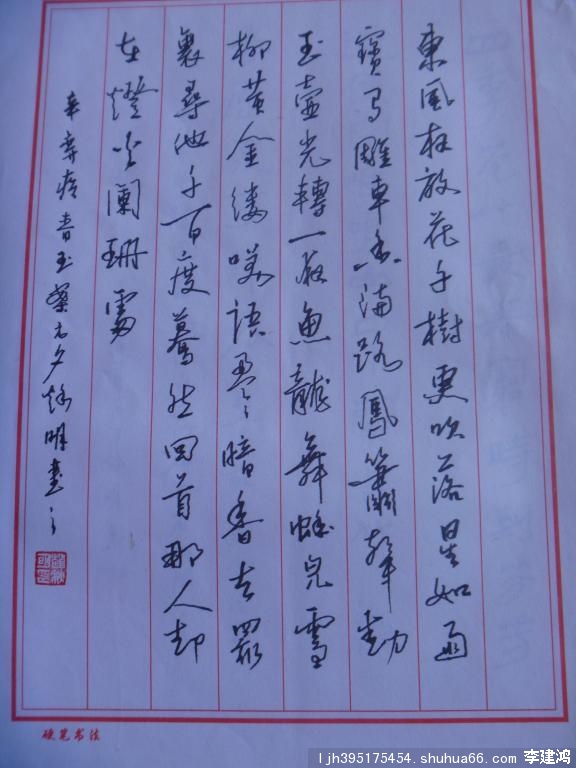 東風夜放花千樹更吹落星如雨
寶馬雕車香滿路鳳簫聲動
玉壺光轉一夜魚龍舞蛾兒雪
柳黄金缕笑語盈々暗香去眾
裏尋他千百度驀然回首那人却
在燈火闌珊處
辛棄疾青玉案元夕秋明書之
硬笔书法
ljh395175454.shuhua66.com 李建鸿